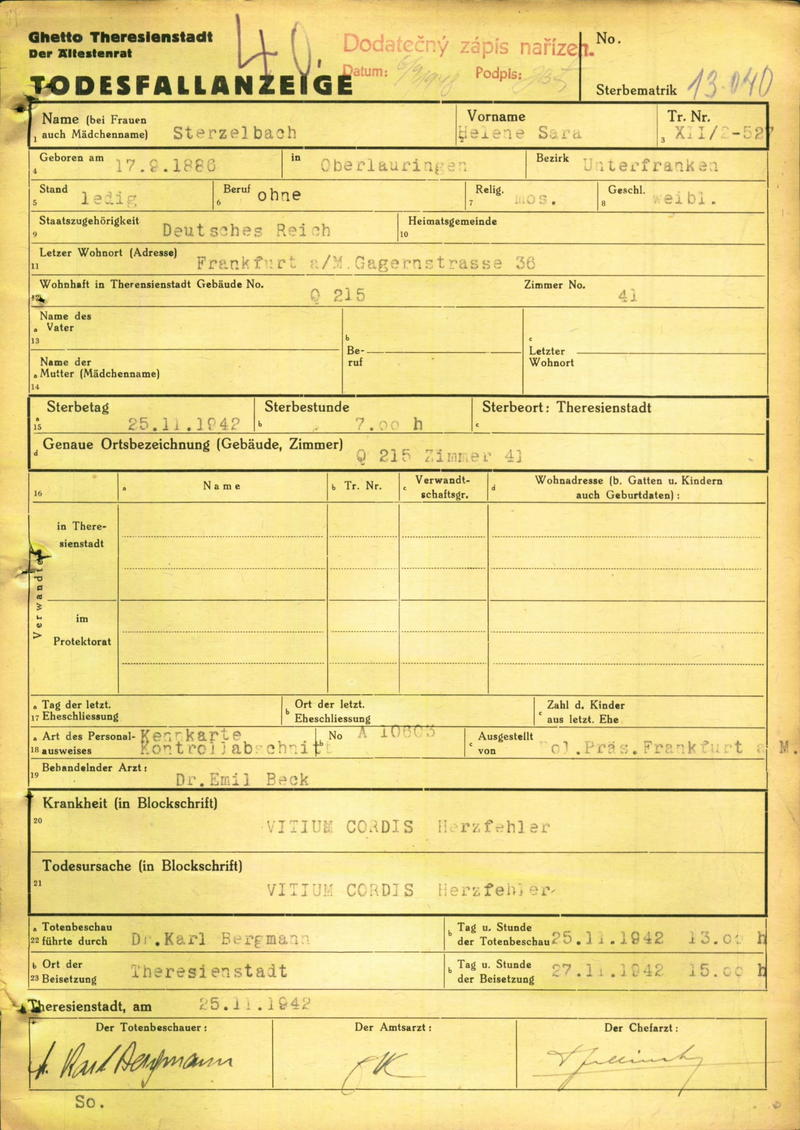 Ghetto Theresienstadt
Der Ältestenrat
40.
Dodatečný zápis nařízen.
Datum: Podpis:
No.
TODESFALLANZEIGE
Sterbematrik 13.040
1 Name (bei Frauen auch Mädchenname) Sterzelbach
Vorname Helene Sara
3 Tr. Nr. XII/2-527
4 Geboren am 17.9.1886 in Oberlauringen Bezirk Unterfranken
5 Stand ledig 6 Beruf ohne 7 Relig. mos. 8 Geschl. weibl.
9 Staatszugehörigkeit Deutsches Reich 10 Heimatsgemeinde
11 Letzer Wohnort (Adresse) Frankfurt a/M.Gagernstrasse 36
12 Wohnhaft in Therensienstadt Gebäude No. Q 215 Zimmer No. 41
13 a Name des Vater
14 a Name der Mutter (Mädchenname)
b Be-ruf
c Letzter Wohnort
a 15 Sterbetag 25.11.1942 b Sterbestunde 7.00 h c Sterbeort: Theresienstadt
d Genaue Ortsbezeichnung (Gebäude, Zimmer) Q 215 Zimmer 41
16 a Name b Tr. Nr. c Verwandt-schaftsgr. d Wohnadresse (b. Gatten u. Kindern auch Geburtdaten) :
Verwandte
in There-
sienstadt
im
Protektorat
a 17 Tag der letzt. Eheschliessung b Ort der letzt. Eheschliessung c Zahl d. Kinder aus letzt. Ehe
a 18 Art des Personal-ausweises Kennkarte Kontrollabschnitt b No A 10803 c Ausgestellt von Pol.Präs.Frankfurt a M.
19 Behandelnder Arzt: Dr.Emil Beck
Krankheit (in Blockschrift)
20 VITIUM CORDIS Herzfehler
Todesursache (in Blockschrift)
21 VITIUM CORDIS Herzfehler
a 22 Totenbeschau führte durch Dr.Karl Bergmann b Tag u. Stunde der Totenbeschau 25.11.1942 13.00 h
b 23 Ort der Beisetzung Theresienstadt b Tag u. Stunde der Beisetzung 27.11.1942 15.00 h
Theresienstadt, am 25.11.1942
Der Totenbeschauer: Der Amtsarzt: Der Chefarzt:
Dr. Karl Bergmann
So.